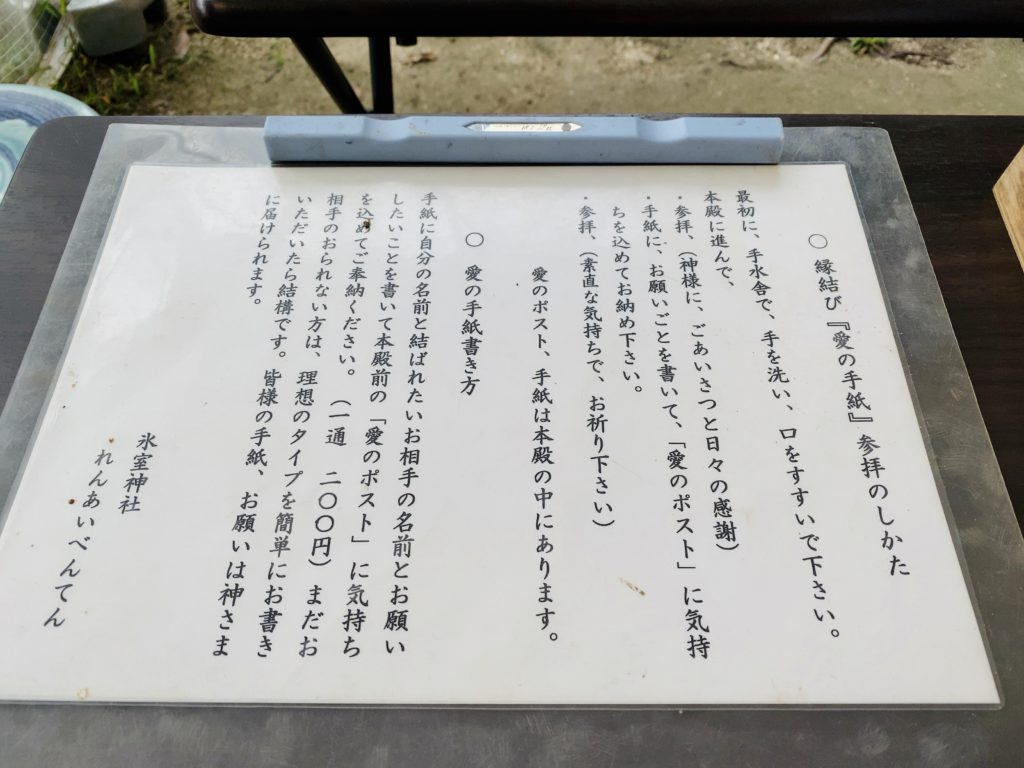 ○ 縁結び『愛の手紙』参拝のしかた
最初に、手水舎で、手を洗い、口をすすいで下さい。
本殿に進んで、
・参拝、(神様に、ごあいさつと日々の感謝)
・手紙に、お願いごとを書いて、「愛のポスト」に気持
ちを込めてお納め下さい。
・参拝、(素直な気持ちで、お祈り下さい)
愛のポスト、手紙は本殿の中にあります。
○ 愛の手紙書き方
手紙に自分の名前と結ばれたいお相手の名前とお願い
したいことを書いて本殿前の「愛のポスト」に気持ち
を込めてご奉納ください。(一通 二〇〇円)まだお
相手のおられない方は、理想のタイプを簡単にお書き
いただいたら結構です。皆様の手紙、お願いは神さま
に届けられます。
氷室神社
れんあいべんてん